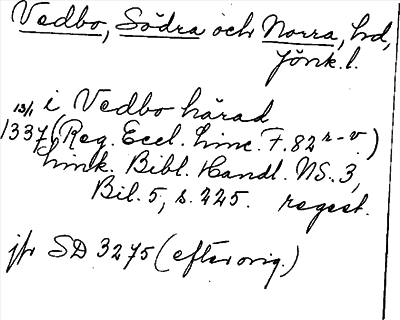 Vedbo, Södra och Norra, hd,
Jönk. l.
13/1 i Vedbo härad
1337 (Reg. Eccl. Linc. F. 82 r-v.)
Link. Bibl. Handl. NS. 3,
Bil. 5, s. 225. regest.
jfr SD 3275 (efter orig.)